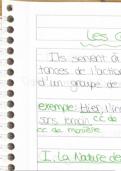 Les C
Ils servent à
tances de l'action
d'un groupe de
exemple: Hier, l'in
CC de
CC de manière
I. La Nature des